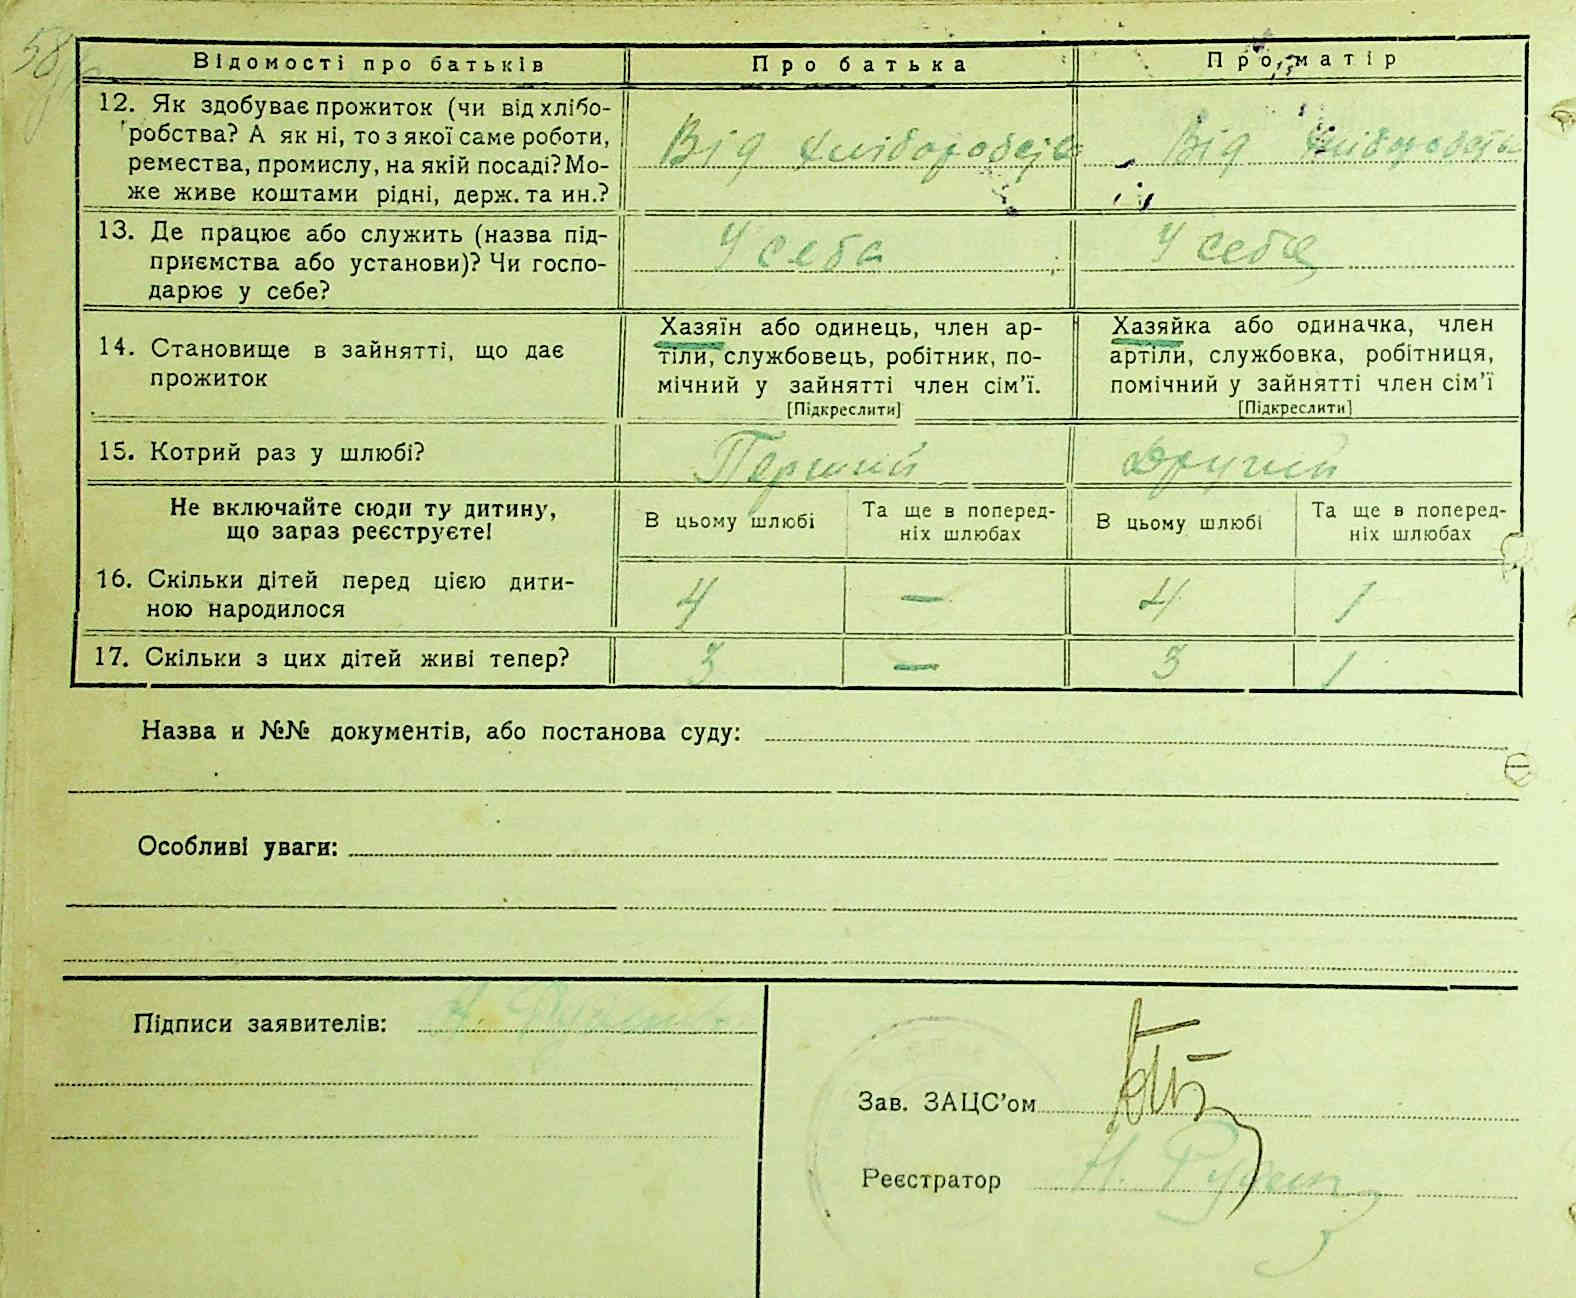 58
Відомості про батьків
Про батька
Про матір
12. Як здобуває прожиток (чи від хлібо-
робства? А як ні, то з якої саме роботи,
ремества, промислу, на якій посаді? Мо-
же живе коштами рідні, держ. та ин.?
Від хліборобства
Від хліборобства
13. Де працює або служить (назва під-
приємства або установи)? Чи госпо-
дарює у себе?
У себе
У себе
14. Становище в зайнятті, що дає
прожиток
Хазяїн або одинець, член ар-
тіли, службовець, робітник, по-
мічний у зайнятті член сім'ї.
[Підкреслити]
Хазяйка або одиначка, член
артіли, службовка, робітниця,
помічний у зайнятті член сім'ї
[Підкреслити]
15. Котрий раз у шлюбі?
Перший
Другий
Не включайте сюди ту дитину,
що зараз реєструєте!
В цьому шлюбі
Та ще в поперед-
ніх шлюбах
В цьому шлюбі
Та ще в поперед-
ніх шлюбах
16. Скільки дітей перед цією дити-
ною народилося
4 — 4 1
17. Скільки з цих дітей живі тепер?
3 — 3 1
Назва и №№ документів, або постанова суду:
Особливі уваги:
Підписи заявителів:
Зав. ЗАЦС'ом
Реєстратор